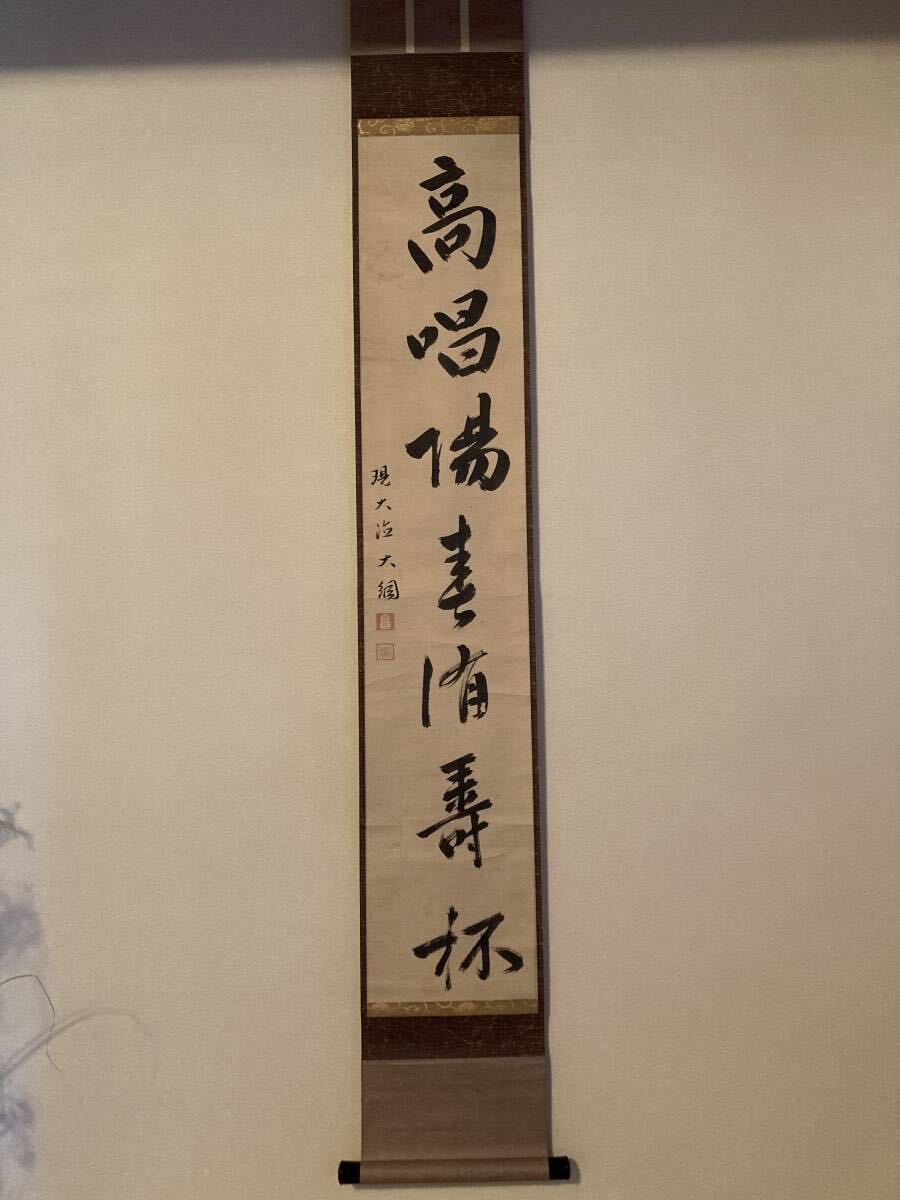 高唱陽春侑壽杯
現大徳大綱